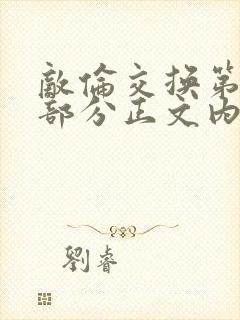 敵倫交換第
部分正文内
劉睿